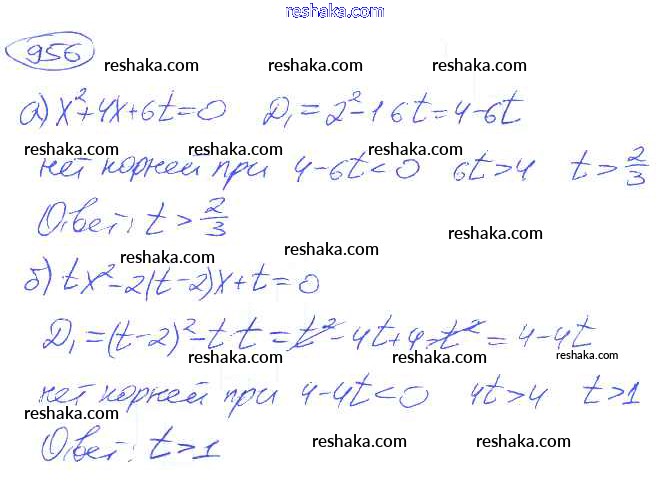 reshaka.com
956
reshaka.com reshaka.com reshaka.com
а) x²+4x+6t=0 D₁=2²-1·6t=4-6t
reshaka.com reshaka.com reshaka.com
нет корней при 4-6t<0 6t>4 t>2/3
Ответ: t>2/3
reshaka.com reshaka.com reshaka.com
б) tx²-2(t-2)x+t=0
D₁=(t-2)²-t·t=t²-4t+4-t²=4-4t
reshaka.com reshaka.com reshaka.com
нет корней при 4-4t<0 4t>4 t>1
reshaka.com
Ответ: t>1
reshaka.com reshaka.com
reshaka.com